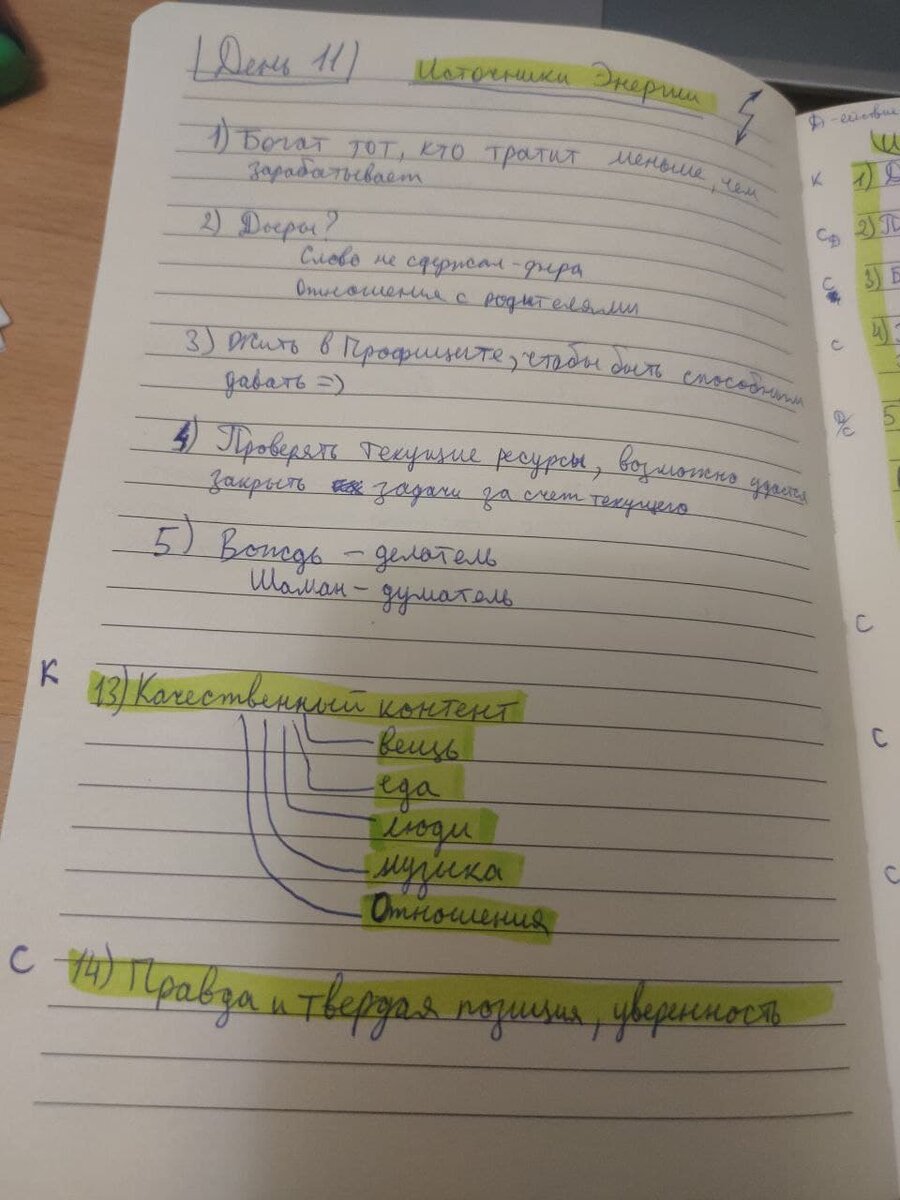 День 11 Источники Энергии
1) Богат тот, кто тратит меньше, чем
зарабатывает
2) Дыры?
Слово не сдержал - дыра
Отношения с родителями
3) Жить в Профиците, чтобы быть способным
давать =)
4) Проверять текущие ресурсы, возможно удастся
закрыть задачи за счет текущего
5) Вождь - делатель
Шаман - думатель
К 13) Качественный контент
вещь
еда
люди
музыка
Отношения
С 14) Правда и твердая позиция, уверенность
Д - ействие
К 1)
СД 2) П
С 3) Б
С 4)
Д/С 5
С
С
С